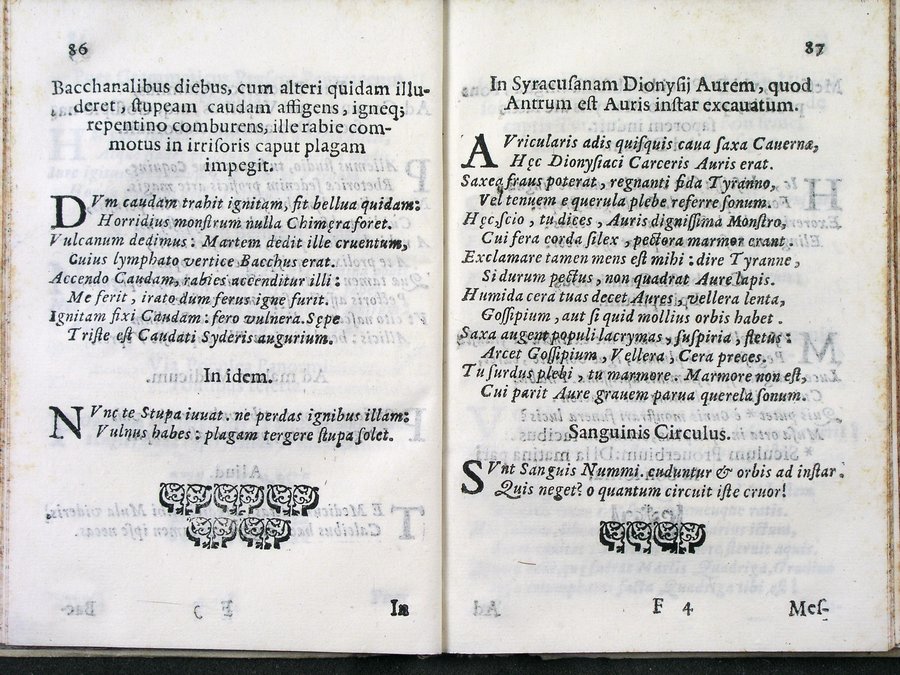 86
Bacchanalibus diebus, cum alteri quidam illu-
deret, ſtupeam caudam affigens, igneq;
repentino comburens, ille rabie com-
motus in irriſoris caput plagam
impegit.
DVm caudam trahit ignitam, fit bellua quidam:
Horridius monſtrum nulla Chimęra foret.
Vulcanum dedimus: Martem dedit ille cruentum,
Cuius lymphato vertice Bacchus erat.
Accendo Caudam, rabies accenditur illi:
Me ferit, irato dum ferus igne furit.
Ignitam fixi Caudam: fero vulnera. Sępe
Triſte eſt Caudati Syderis augurium.
In idem.
NVnc te Stupa iuuat. ne perdas ignibus illam:
Vulnus habes: plagam tergere ſtupa ſolet.
F
In
87
In Syracuſanam Dionyſij Aurem, quod
Antrum eſt Auris inſtar excauatum.
AVricularis adis quiſquis caua ſaxa Cauernæ,
Hęc Dionyſiaci Carceris Auris erat.
Saxea fraus poterat, regnanti fida Tyranno,
Vel tenuem e querula plebe referre ſonum.
Hęc, ſcio, tu dices, Auris digniſſima Monſtro,
Cui fera corda ſilex, pectora marmor erant.
Exclamare tamen mens eſt mihi: dire Tyranne,
Si durum pectus, non quadrat Aure lapis.
Humida cera tuas decet Aures, vellera lenta,
Goſſipium, aut ſi quid mollius orbis habet.
Saxa augent populi lacrymas, ſuſpiria, fletus:
Arcet Goſſipium, Vellera, Cera preces.
Tu ſurdus plebi, tu marmore. Marmore non eſt,
Cui parit Aure grauem parua querela ſonum.
Sanguinis Circulus.
SVnt Sanguis Nummi. cuduntur & orbis ad inſtar.
Quis neget? o quantum circuit iſte cruor!
F 4
Meſ-